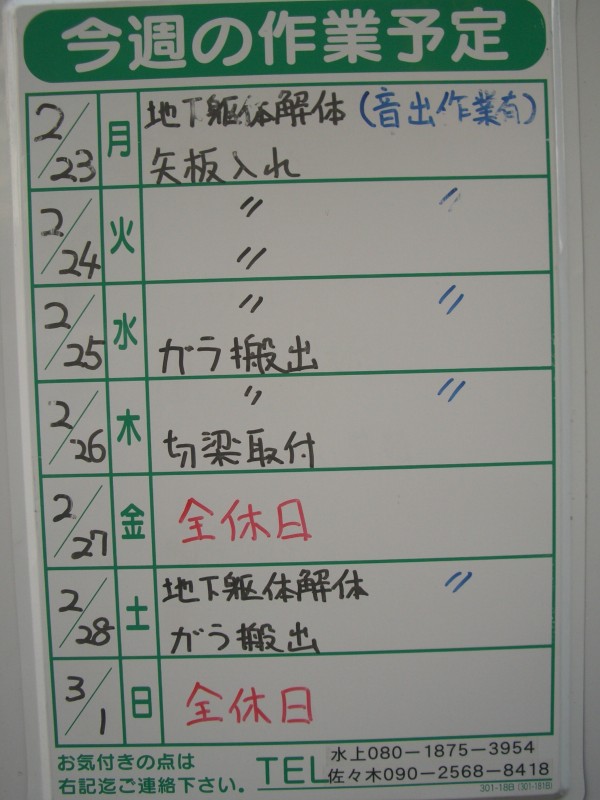 今週の作業予定
2/23 月 地下躯体解体（音出作業有）
矢板入れ
2/24 火 〃 〃
〃
2/25 水 〃 〃
ガラ搬出
2/26 木 〃 〃
切梁取付
2/27 金 全休日
2/28 土 地下躯体解体 〃
ガラ搬出
3/1 日 全休日
お気付きの点は
右記迄ご連絡下さい。
TEL
水上080−1875−3954
佐々木090−2568−8418
301-18B (301-181B)